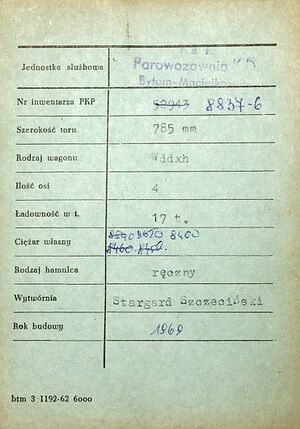 P K P
Jednostka służbowa Parowozownia K D
Bytom-Maciejków
Nr inwentarza PKP 52943 8837-6
Szerokość toru 785 mm
Rodzaj wagonu wddxh
Ilość osi 4
Ładowność w t. 17 t.
8540 8670 8400
Ciężar własny 8460
Rodzaj hamulca ręczny
Wytwórnia Stargard Szczeciński
Rok budowy 1969
btm 3 1192-62 6000